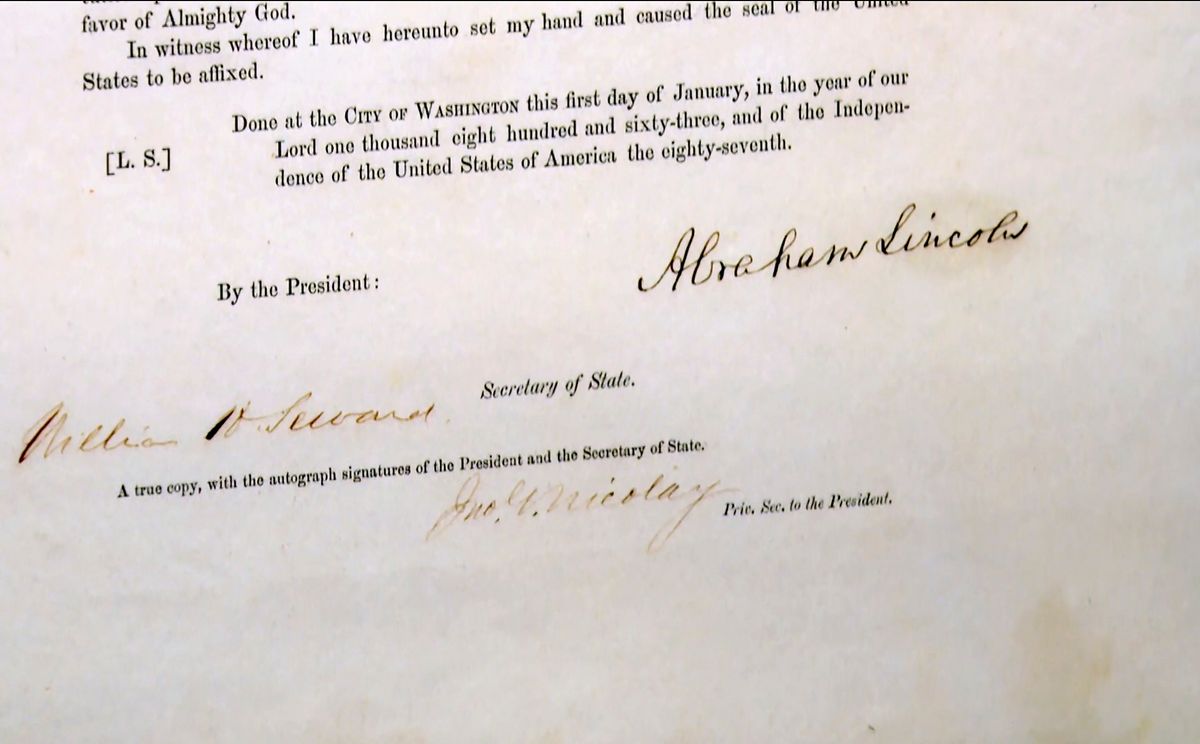 favor of Almighty God.
In witness whereof I have hereunto set my hand and caused the seal of the United
States to be affixed.
Done at the CITY OF WASHINGTON this first day of January, in the year of our
[L. S.]
Lord one thousand eight hundred and sixty-three, and of the Indepen-
dence of the United States of America the eighty-seventh.
Abraham Lincoln
By the President:
Secretary of State.
William H. Seward.
A true copy, with the autograph signatures of the President and the Secretary of State.
Jno. G. Nicolay
Priv. Sec. to the President.